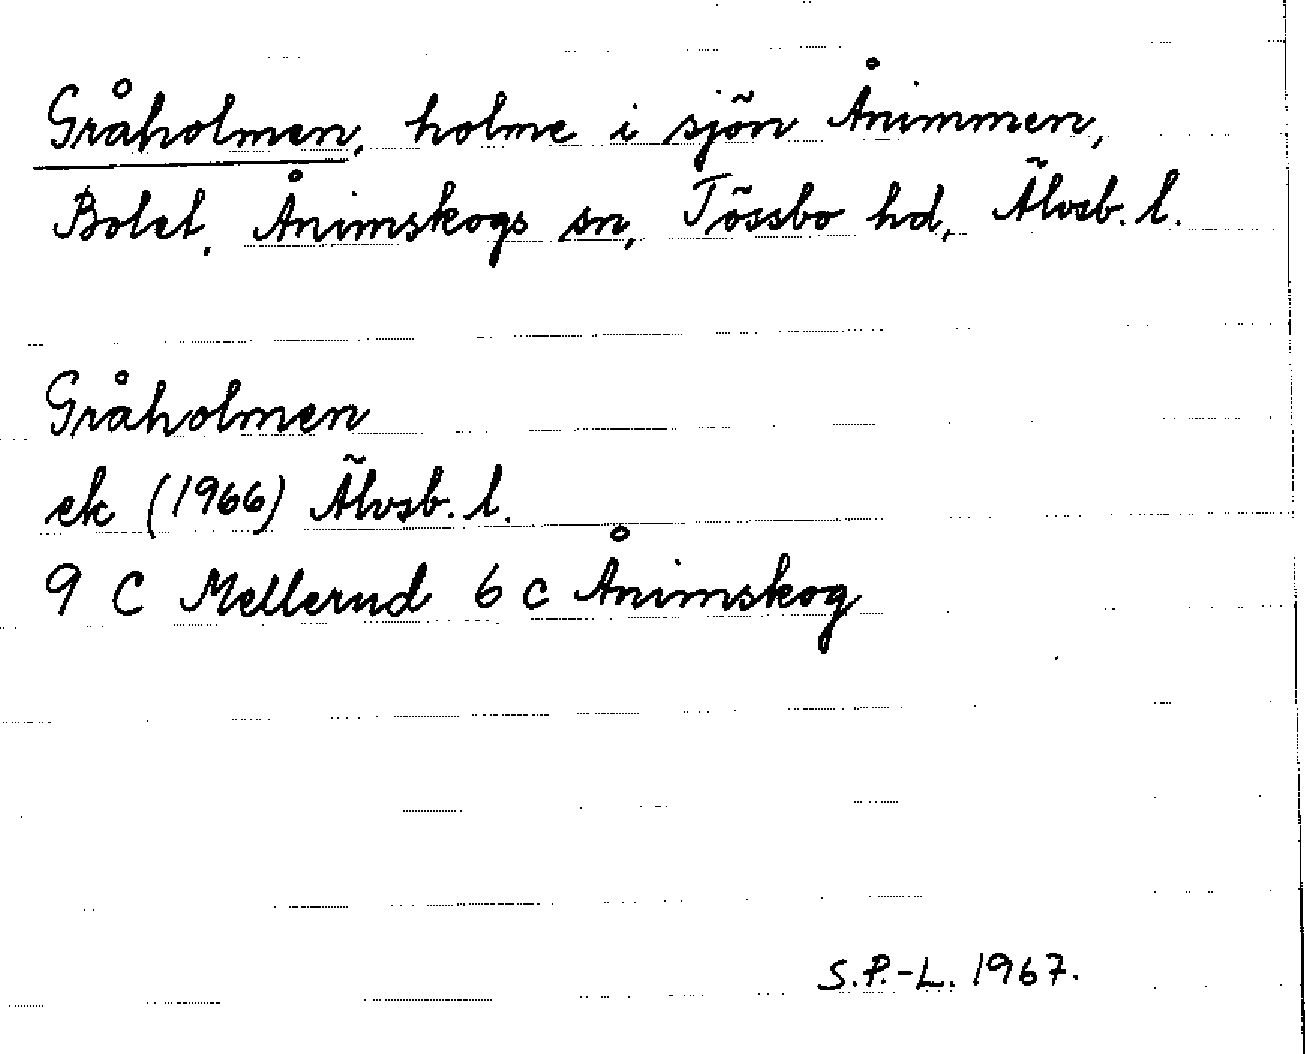 Gråholmen, holme i sjön Ånimmen,
Bolet, Ånimskogs sn, Tössbo hd, Älvsb. l.
Gråholmen
ek (1966) Älvsb. l.
9 C Mellerud 6 c Ånimskog
S.P.-L. 1967.